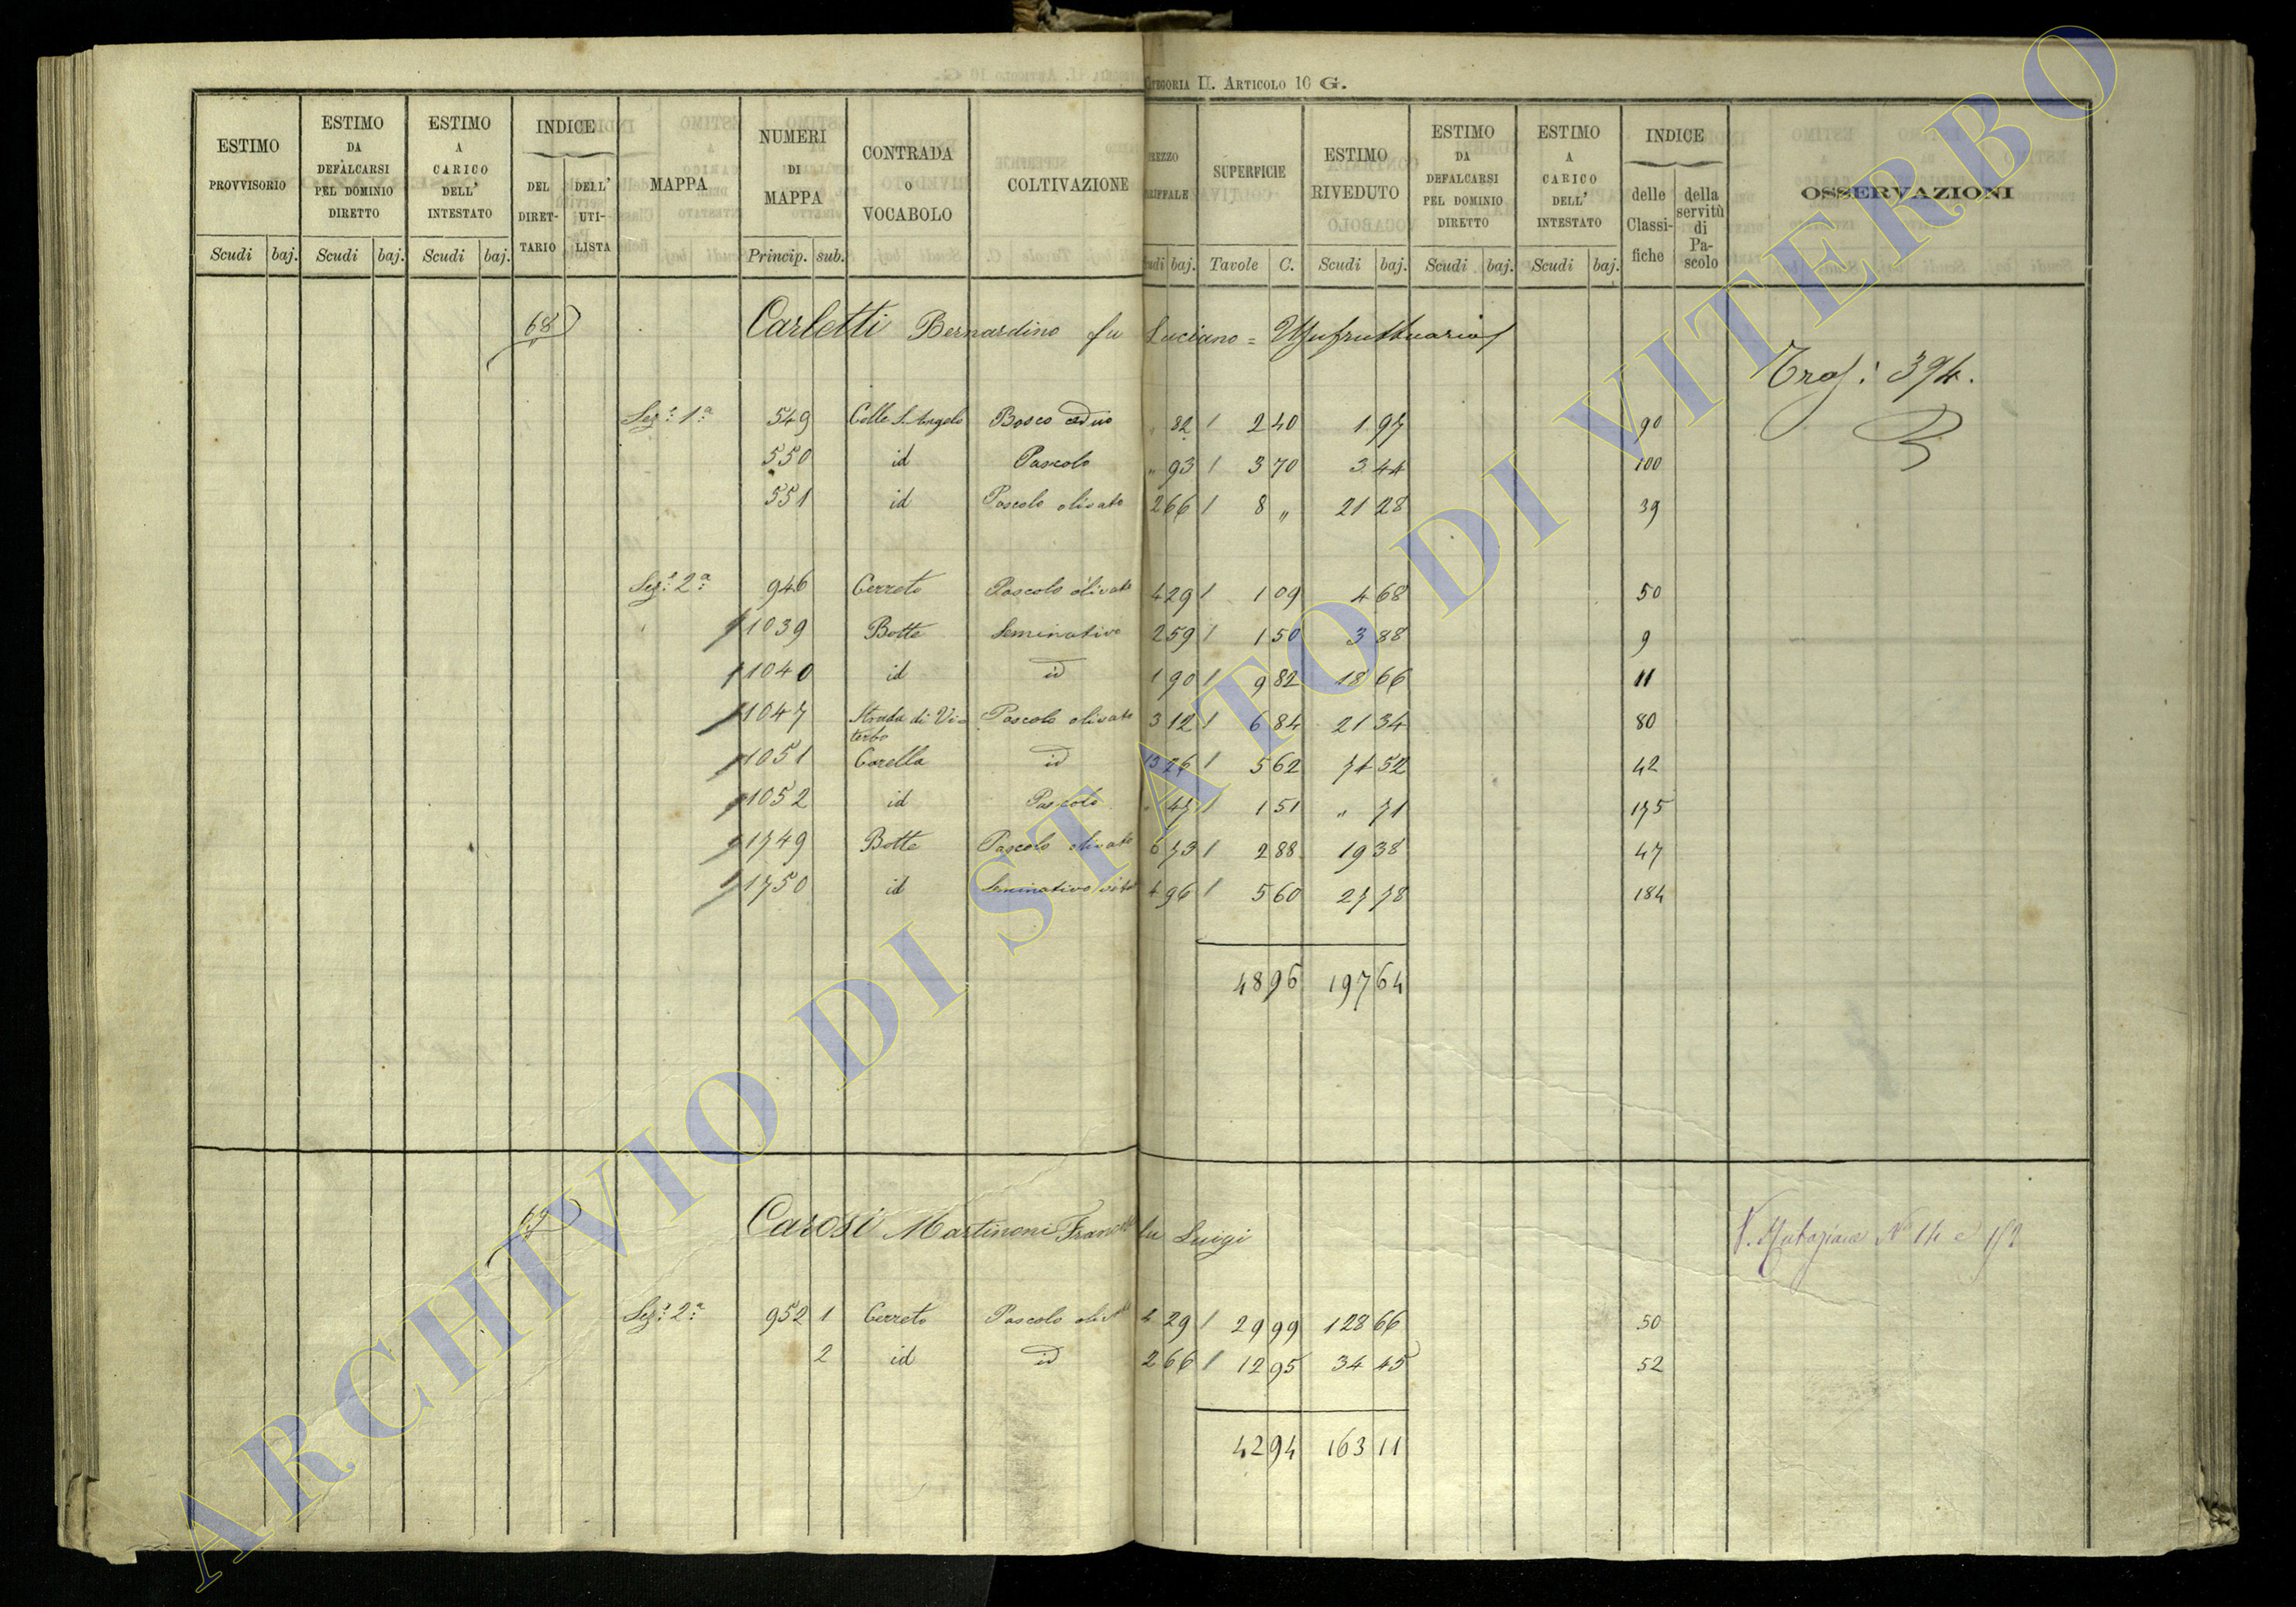 CATEGORIA II. ARTICOLO 10 G.
ESTIMO PROVVISORIO Scudi baj. ESTIMO DA DEFALCARSI PEL DOMINIO DIRETTO Scudi baj. ESTIMO A CARICO DELL' INTESTATO Scudi baj. INDICE DEL DIRETTARIO DELL' UTILISTA MAPPA NUMERI DI MAPPA Princip. sub. CONTRADA O VOCABOLO COLTIVAZIONE PREZZO TARIFFALE Scudi baj. SUPERFICIE Tavole C. ESTIMO RIVEDUTO Scudi baj. ESTIMO DA DEFALCARSI PEL DOMINIO DIRETTO Scudi baj. ESTIMO A CARICO DELL' INTESTATO Scudi baj. INDICE delle Classifiche della servitù di Pascolo OSSERVAZIONI
68 Carletti Bernardino fu Luciano = Usufruttuario
394.
Sez:e 1:a 549 Colle S. Angelo Bosco ceduo " 82 / 2 40 1 97 90
550 id Pascolo " 93 / 3 70 3 44 100
551 id Pascolo olivato 2 66 / 8 " 21 28 39
Sez:e 2:a 946 Cerreto Pascolo olivato 4 29 / 1 09 4 68 50
1039 Botte Seminativo 2 59 / 1 50 3 88 9
1040 id id 1 90 / 9 82 18 66 11
1047 Strada di Vi= Pascolo olivato 3 12 / 6 84 21 34 80
terbo
1051 Corella id 13 26 / 5 62 74 52 42
1052 id Pascolo " 47 / 1 51 " 71 175
1749 Botte Pascolo olivato 6 73 / 2 88 19 38 47
1750 id Seminativo vitato 4 96 / 5 60 27 78 184
48 96 197 64
69 Carosi Martinoni Franc fu Luigi
V. N° 14 e
Sez:e 2:a 952 1 Cerreto Pascolo olivato 4 29 / 29 99 128 66 50
2 id id 2 66 / 12 95 34 45 52
42 94 163 11
ARCHIVIO DI STATO DI VITERBO